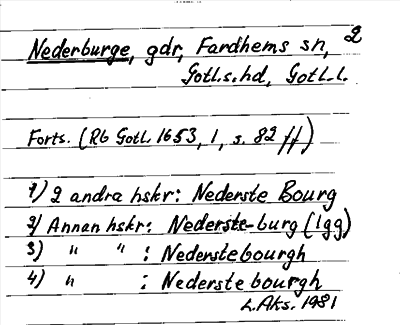 2
Nederburge, gdr, Fardhems sn,
Gotl.s.hd, Gotl.l.
Forts. (Rb Gotl. 1653, 1, s. 82 ff)
1) 2 andra hskr: Nederste Bourg
2) Annan hskr: Nederste-burg (lgg)
3) " " : Nederstebourgh
4) " : Nederstebourgh
L.Aks. 1981